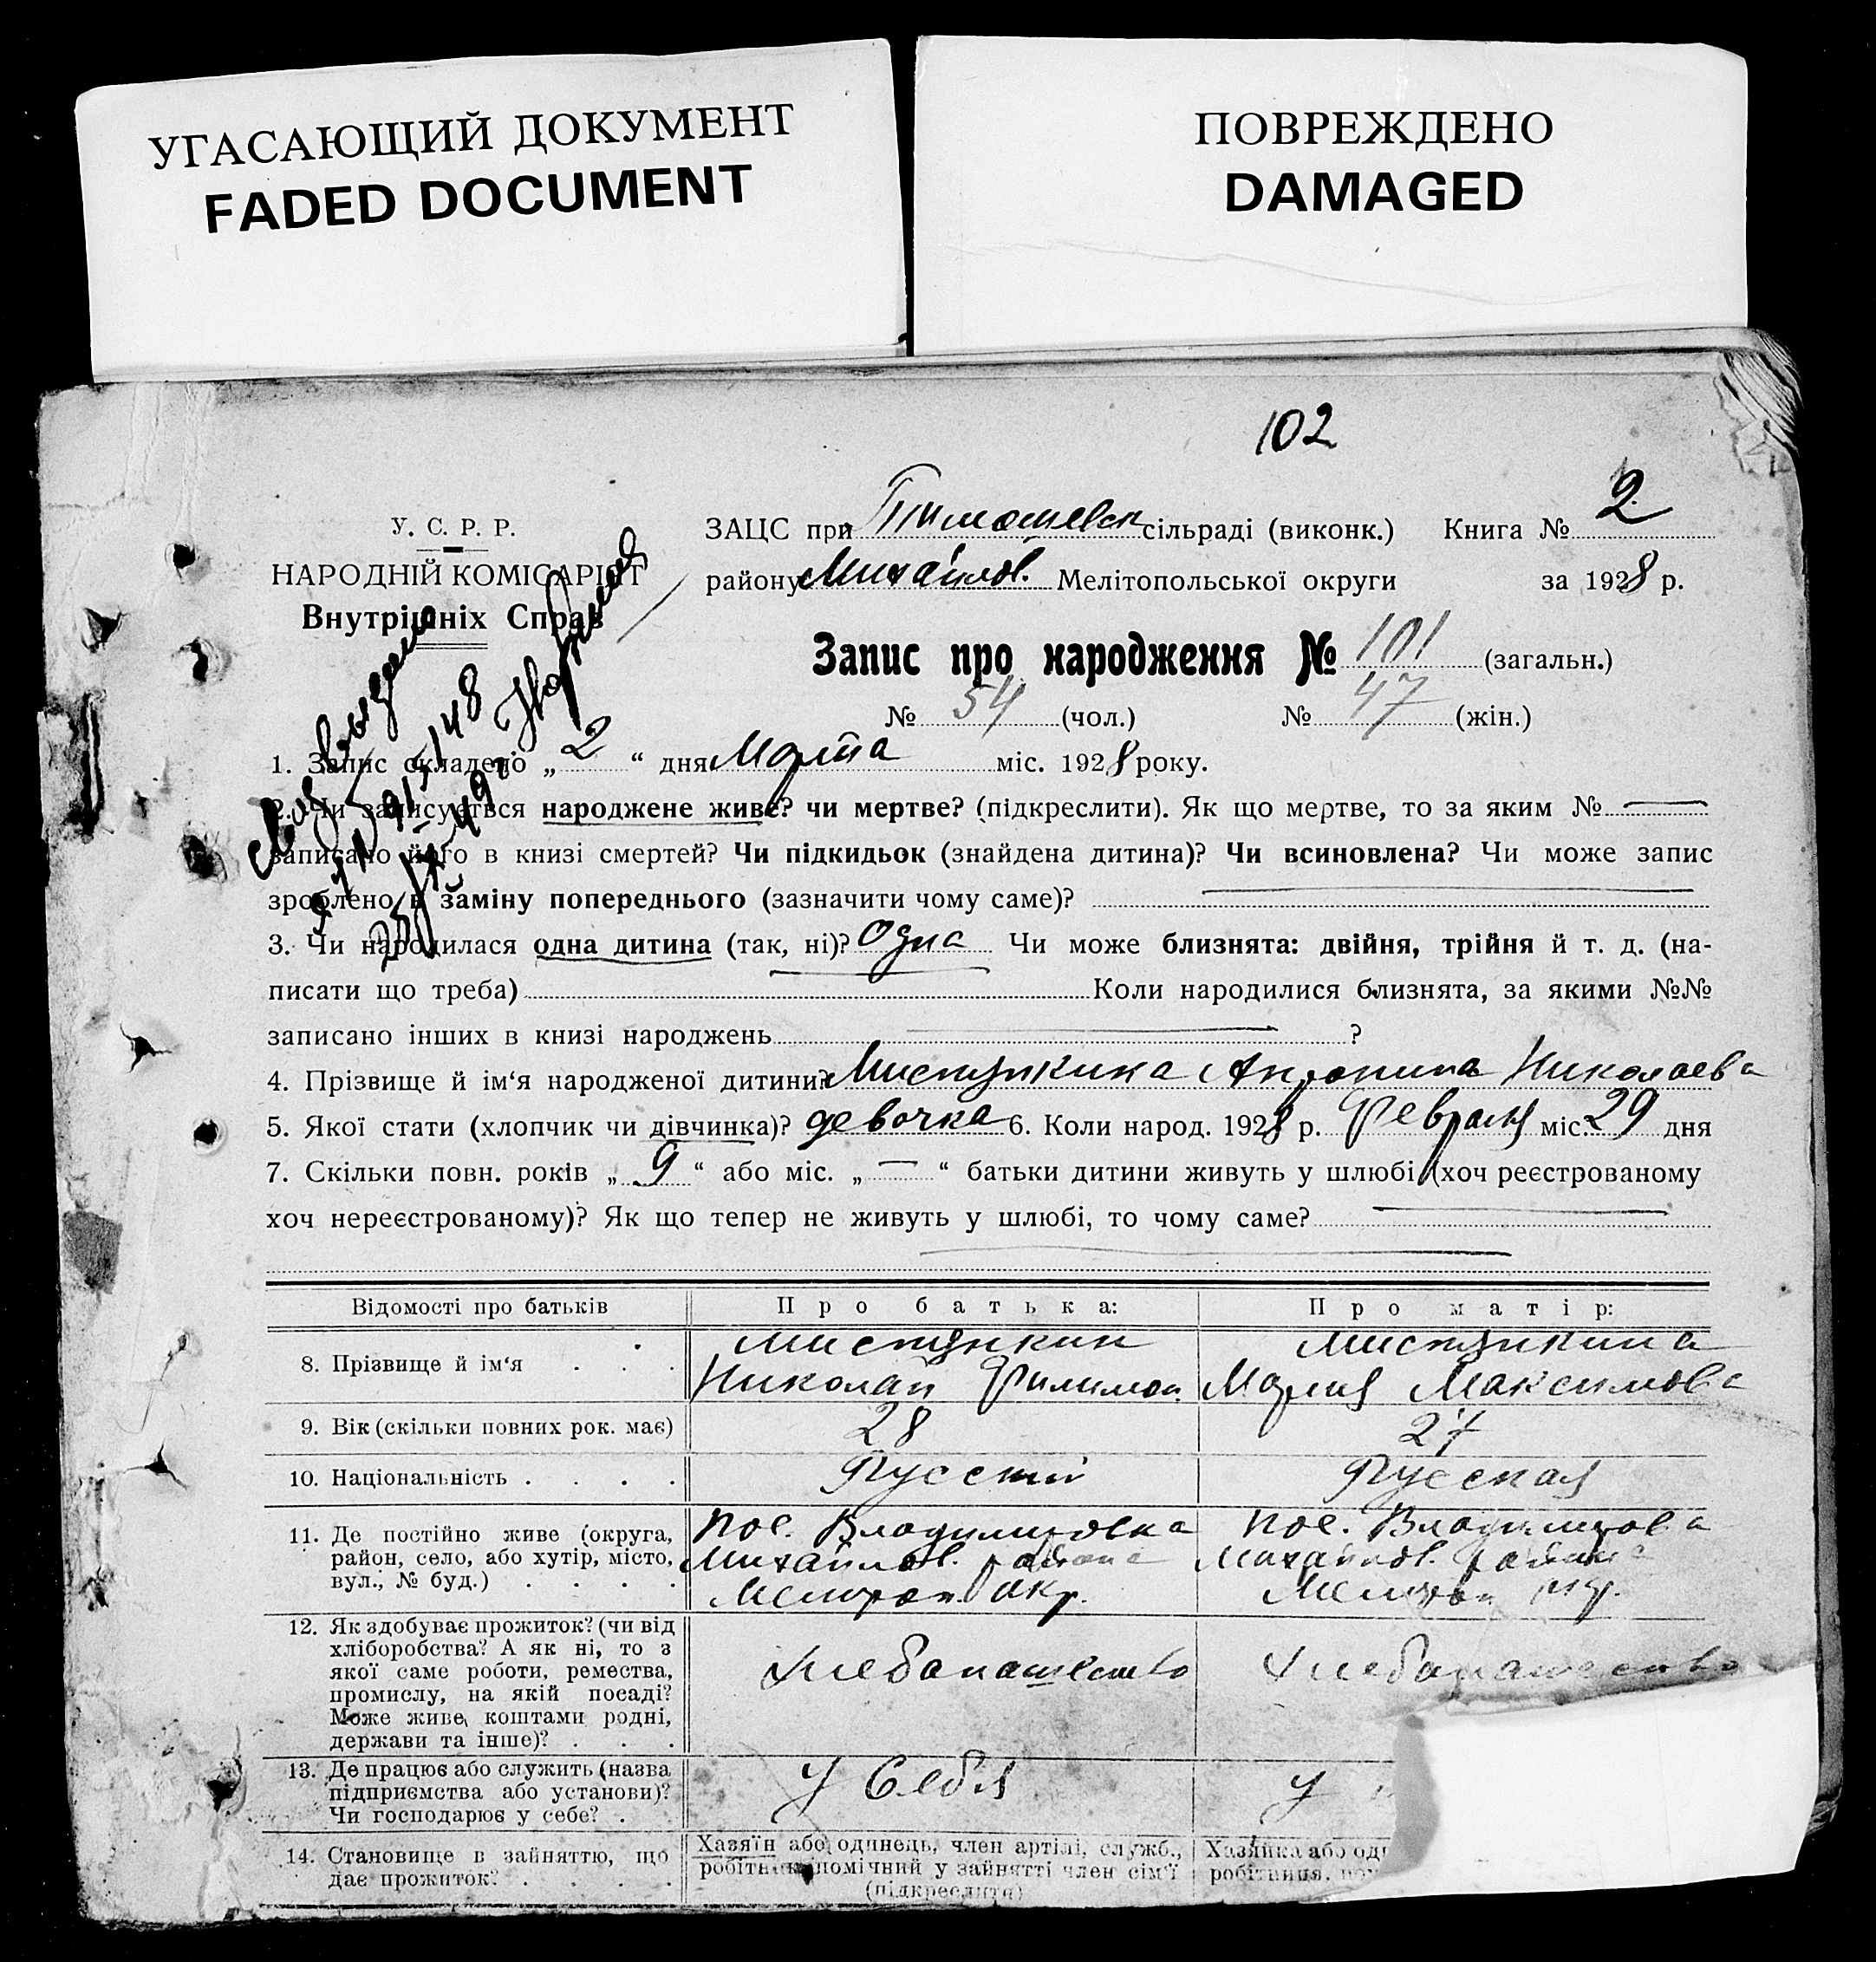 УГАСАЮЩИЙ ДОКУМЕНТ
FADED DOCUMENT
ПОВРЕЖДЕНО
DAMAGED
102
У. С. Р. Р.
НАРОДНІЙ КОМІСАРІЯТ
Внутрішніх Справ
ЗАЦС при Тимошевск сільраді (виконк.) Книга № 2
району Михайлов. Мелітопольської округи за 1928 р.
Запис про народження № 101 (загальн.)
№ 54 (чол.) № 47 (жін.)
1. Запис складено „ 2 “ дня Марта міс. 1928 року.
2. Чи записується народжене живе? чи мертве? (підкреслити). Як що мертве, то за яким №
записано його в книзі смертей? Чи підкидьок (знайдена дитина)? Чи всиновлена? Чи може запис
зроблено в заміну попереднього (зазначити чому саме)?
3. Чи народилася одна дитина (так, ні)? Одна Чи може близнята: двійня, трійня й т. д. (на-
писати що треба) Коли народилися близнята, за якими №№
записано інших в книзі народжень ?
4. Прізвище й ім‘я народженої дитини? Мистункина Николаева
5. Якої стати (хлопчик чи дівчинка)? девочка 6. Коли народ. 1928 р. Февраля міс. 29 дня
7. Скільки повн. років „ 9 “ або міс. „ — “ батьки дитини живуть у шлюбі (хоч реєстрованому
хоч нереєстрованому)? Як що тепер не живуть у шлюбі, то чому саме?
Відомості про батьків Про батька: Про матір:
8. Прізвище й ім‘я . . .
Мистункин
Николай Филимон.
Мистункина
Мария Максимова
9. Вік (скільки повних рок. має) 28 27
10. Національність . . . . Русский Русская
11. Де постійно живе (округа,
район, село, або хутір, місто,
вул., № буд.) . . . .
пос. Владимировка
Михайлов. района
Мелитоп. окр.
пос. Владимировка
Михайлов. района
Мелитоп окр.
12. Як здобуває прожиток? (чи від
хліборобства? А як ні, то з
якої саме роботи, ремества,
промислу, на якій посаді?
Може живе, коштами родні,
держави та інше)? . . .
Хлебопашество
Хлебопашество
13. Де працює або служить (назва
підприємства або установи)?
Чи господарює у себе? .
У Себя
У
14. Становище в зайняттю, що
дає прожиток? . . . .
Хазяїн або одинець, член артілі, служб.,
робітник, помічний у зайнятті член сім‘ї
(підкреслити)
Хазяйка або
робітниця,